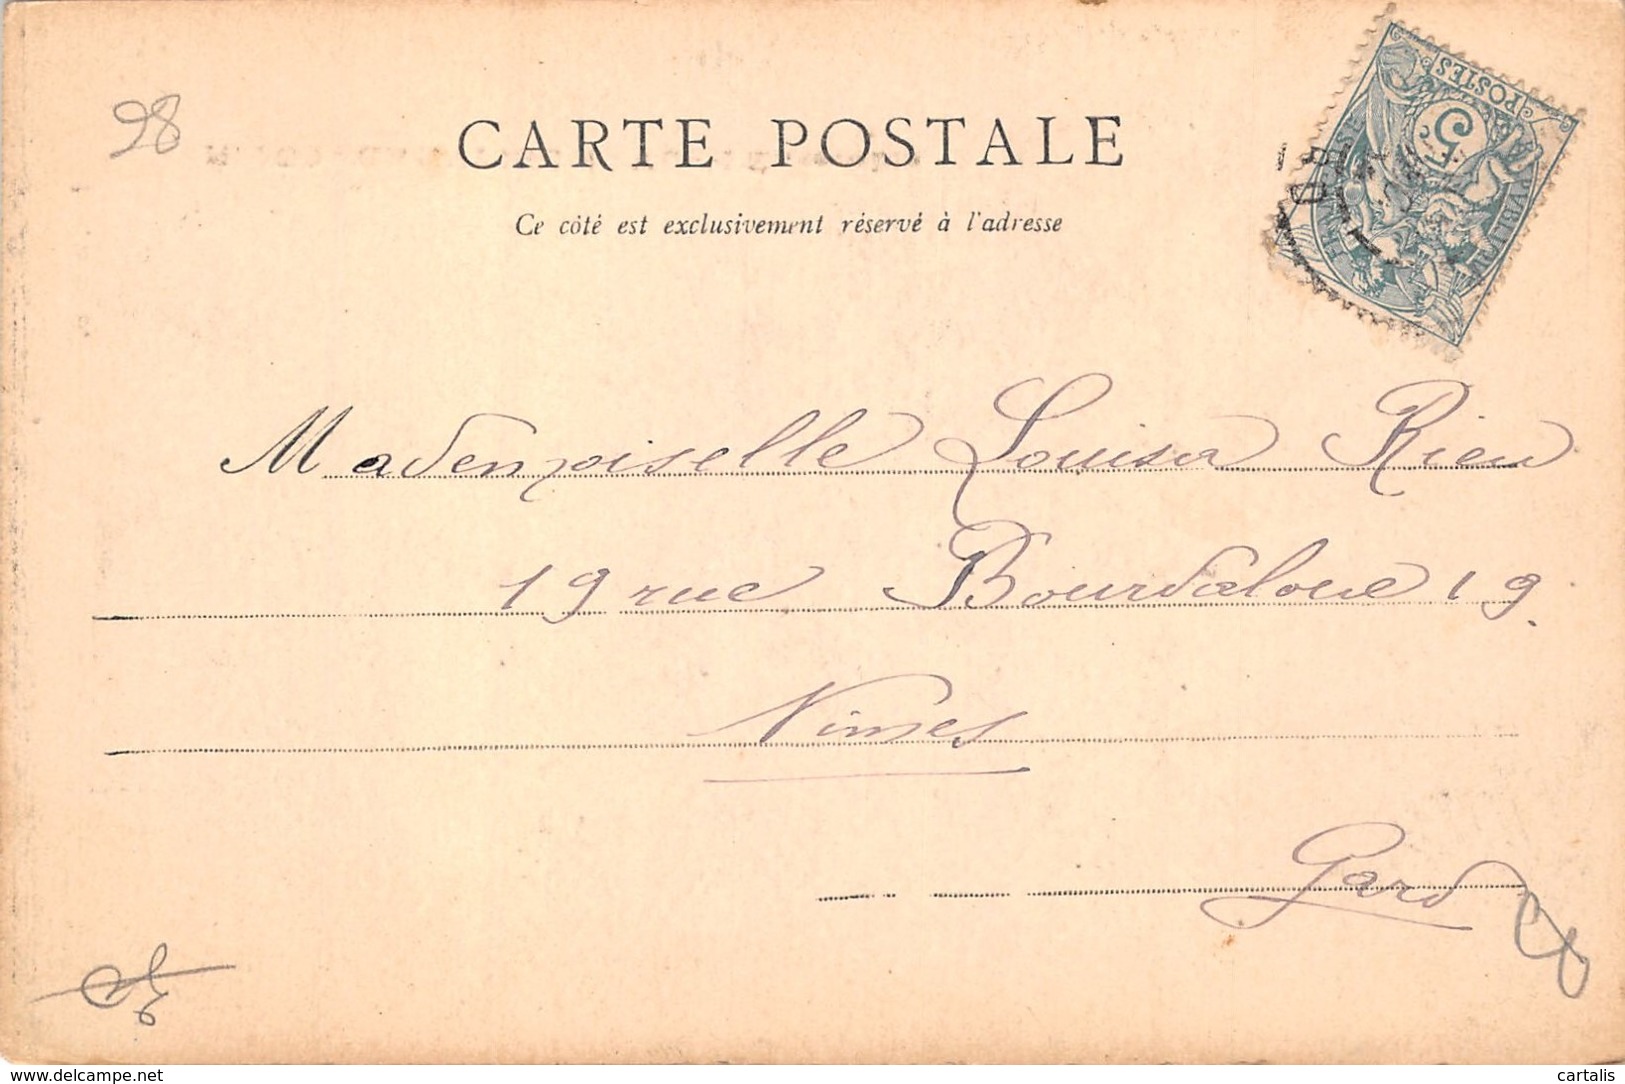 98
CARTE POSTALE
Ce côté est exclusivement réservé à l'adresse
POSTES
5
Mademoiselle Louisa Rieu
19 rue Bourdaloue 19.
Nimes
Gard
www.delcampe.net
cartalis